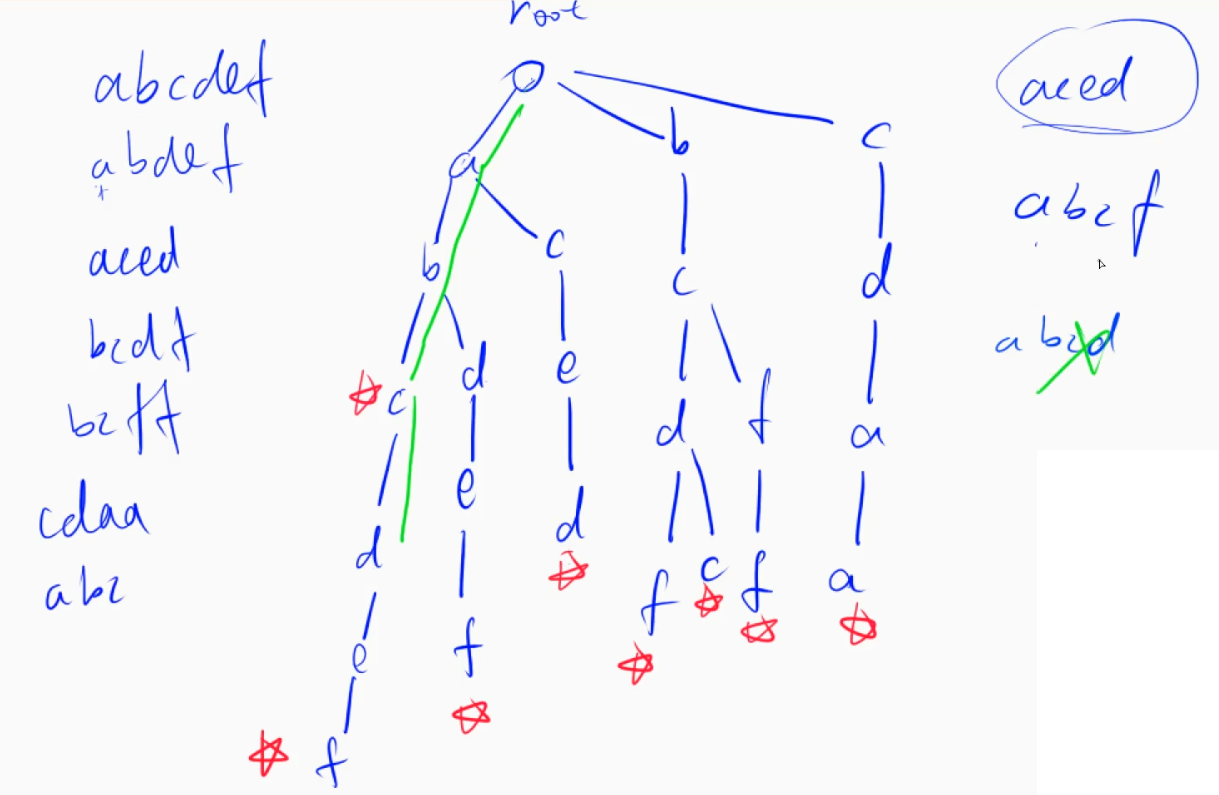 root
abcdef
abdef
aced
bcdf
bcff
cdaa
abc
a b c
b c c d
c d e d f a
d e d f c f a
e f
f
aced
abcf
abcd